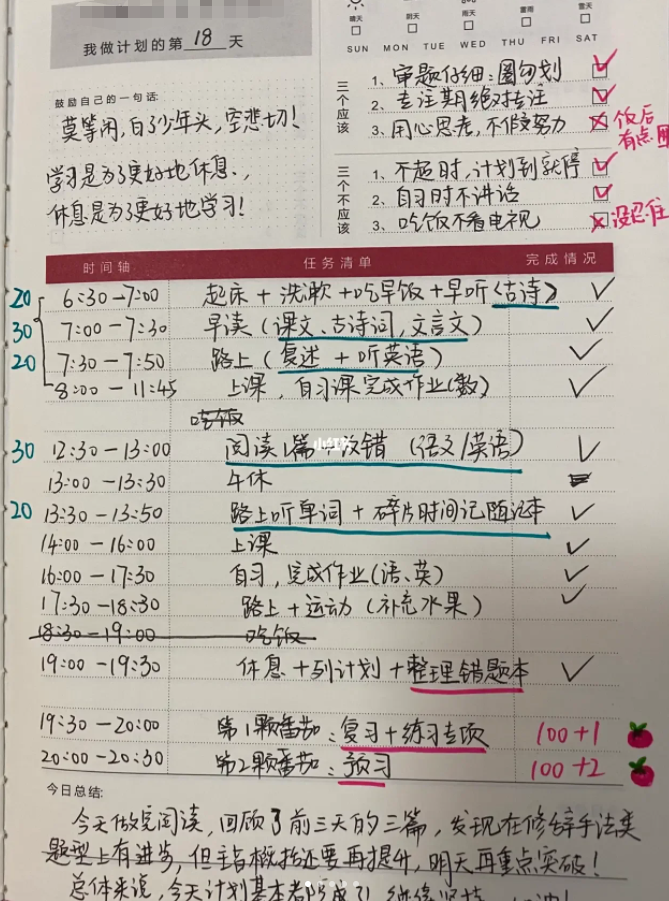 我做计划的第 18 天
晴天 阴天 雨天 雷雨 雪天
SUN MON TUE WED THU FRI SAT
鼓励自己的一句话:
莫等闲,白了少年头,空悲切!
学习是为了更好地休息、,
休息是为了更好地学习!
三个应该
1、审题仔细:圈勾划
2、专注期绝对专注
3、用心思考,不假努力 饭后有点困
三个不应该
1、不超时,计划到就停
2、自习时不讲话
3、吃饭不看电视 没忍住
时间轴 任务清单 完成情况
20 6:30-7:00 起床+洗漱+吃早饭+早听(古诗)
30 7:00-7:30 早读(课文、古诗词,文言文)
20 7:30-7:50 路上(复述+听英语)
8:00-11:45 上课,自习课完成作业(数)
吃饭
30 12:30-13:00 阅读1篇+改错(语文/英语)
小红书
13:00-13:30 午休
20 13:30-13:50 路上听单词+碎片时间记随记本
14:00-16:00 上课
16:00-17:30 自习,完成作业(语、英)
17:30-18:30 路上+运动(补充水果)
18:30-19:00 吃饭
19:00-19:30 休息+列计划+整理错题本
19:30-20:00 第1颗番茄:复习+练习专项 100+1
20:00-20:30 第2颗番茄:预习 100+2
今日总结:
今天做完阅读,回顾了前三天的三篇,发现在修辞手法类
题型上有进步,但主旨概括还要再提升,明天再重点突破!
总体来说,今天计划基本都完成了!继续坚持